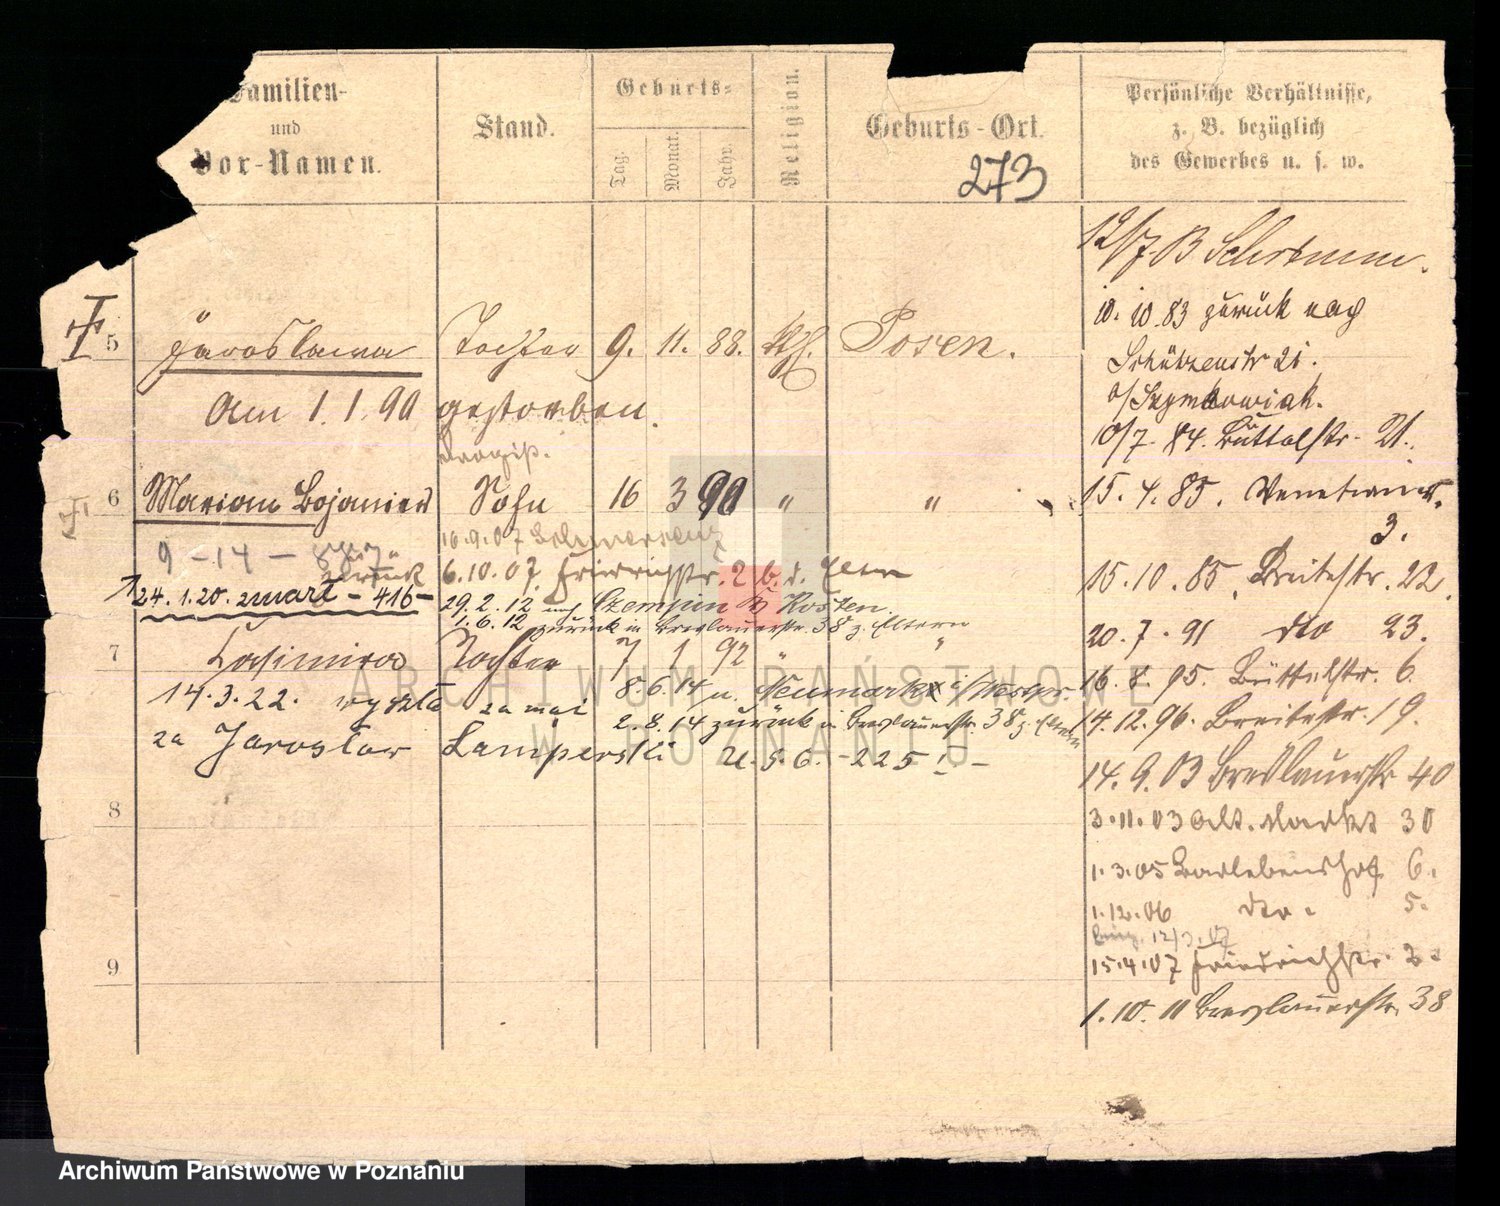 Familien-
und
Vor-Namen.
Stand.
Geburts-
Tag.
Monat.
Jahr.
Religion.
Geburts-Ort.
273
Persönliche Verhältnisse,
z. B. bezüglich
des Gewerbes u. s. w.
12/7. B Schrimm.
10. 10. 83 zurück nach
Schützenstr 21.
b/Szymkowiak.
5 Jaroslawa Tochter 9. 11. 88. kth. Posen.
Am 1. 1. 90 gestorben.
10/7. 84. Büttelstr. 21.
6 Marian Sohn 16 3 90 " "
15. 4. 85. Venetianerstr.
3.
9 - 14 - 887
zurück
16.9.07
6.10.07. Friedrichstr. 2 b. d.
15. 10. 85. Breitestr. 22.
24. 1. 20. zmarł - 416 -
29.2.12 nach Czempin Kr Kosten.
1.6.12 zurück in Breslauerstr. 38 z. Eltern
20. 7. 91 dto 23.
7 Casimira Tochter 7 1 92 " "
16. 8. 95. Büttelstr. 6.
14.3.22. wyszła za mąż
8.6.14 n. Neumark i/Westpr.
2.8.14 zurück in Breslauerstr. 38 z. Eltern
14. 12. 96. Breitestr. 19.
za Jarosław Lamperski U.S.C. - 225
14. 9. 03 Breslauerstr 40
8
3. 11. 03 Alt. Markt 30
1. 3. 05 6.
1. 12. 06 dto. 5.
12/3. 07
9
15. 4. 07 Friedrichstr. 2
1. 10. 11 Breslauerstr. 38
ARCHIWUM PAŃSTWOWE
W POZNANIU
Archiwum Państwowe w Poznaniu